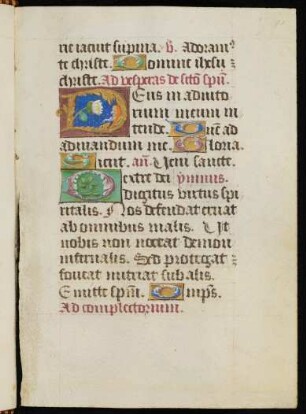 ne iacuit supina. v̄. Adoram⁹
te christe. Domine ihesu
christe. Ad vesperas de scto spū.
Deus in adiuto
rium meum in
tende. Dñe ad
adiuuandum me. Gloria.
Sicut. añ. Veni sancte.
Dextre dei ymnus.
digitus virtus spi
ritalis. Nos defendat eruat
ab omnibus malis. Ut
nobis non noceat demon
infernalis. Sed protegat
foueat nutriat sub alis.
Emitte spm̄. Omps.
Ad completorium.